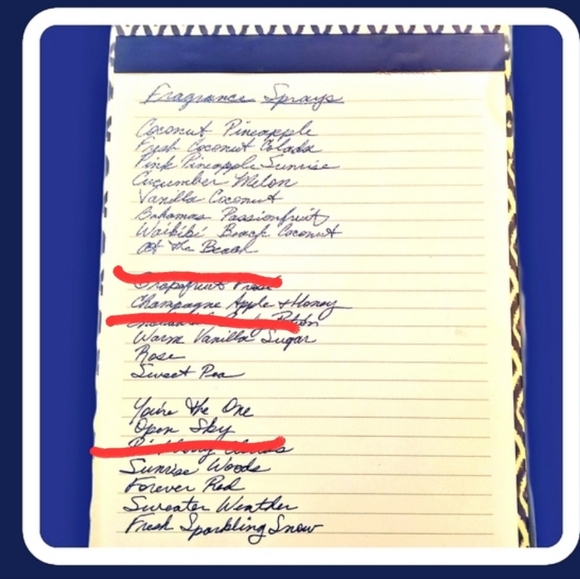 Fragrance Sprays
Coconut Pineapple
Fresh Coconut Colada
Pink Pineapple Sunrise
Cucumber Melon
Vanilla Coconut
Bahamas Passionfruit
Waikiki Beach Coconut
At the Beach
Grapefruit
Champagne Apple + Honey
Warm Vanilla Sugar
Rose
Sweet Pea
You're the One
Open Sky
Sunrise Woods
Forever Red
Sweater Weather
Fresh Sparkling Snow